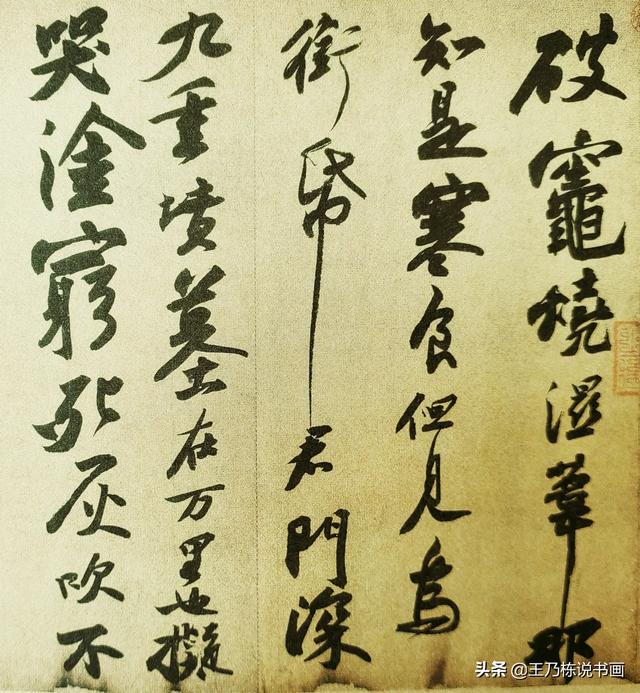 破竈燒濕葦那
知是寒食但見烏
銜帋君門深
九重墳墓在万里也擬
哭塗窮死灰吹不
头条 @王乃栋说书画